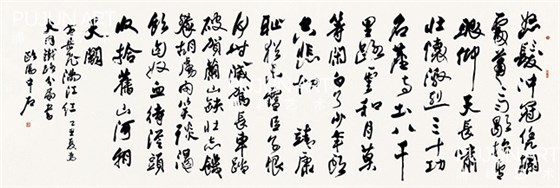 怒髮沖冠憑欄
處蕭蕭雨歇抬望
眼仰天長嘯
壯懷激烈三十功
名塵與土八千
里路雲和月莫
等閒白了少年頭
空悲切 靖康
恥猶未雪臣子恨
何時滅駕長車踏
破賀蘭山缺壯志饑
餐胡虜肉笑談渴
飲匈奴血待從頭
收拾舊山河朝
天闕
岳飛滿江紅
歐陽中石